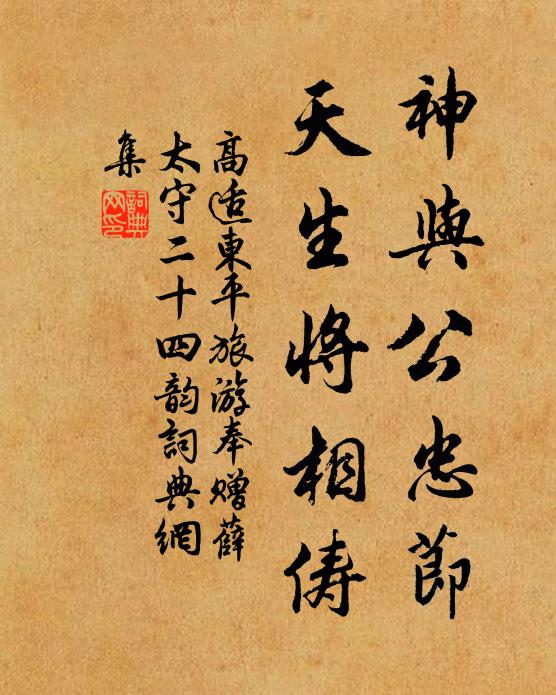 神與公忠節
天生將相儔
高适東平旅游奉贈薛
太守二十四韵詞典網
集
詞典
网印